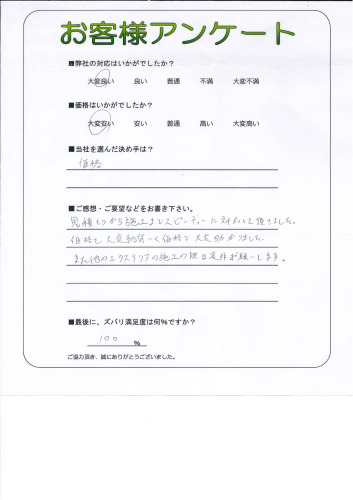 お客様アンケート
■弊社の対応はいかがでしたか？
大変良い 良い 普通 不満 大変不満
■価格はいかがでしたか？
大変安い 安い 普通 高い 大変高い
■当社を選んだ決め手は？
価格
■ご感想・ご要望などをお書き下さい。
見積もりから施工までスピーディーに対応して頂きました。
価格も大変納得いく価格で大変助かりました。
また他のエクステリアの施工の際は是非お願いします。
■最後に、ズバリ満足度は何%ですか？
100 %
ご協力頂き、誠にありがとうございました。